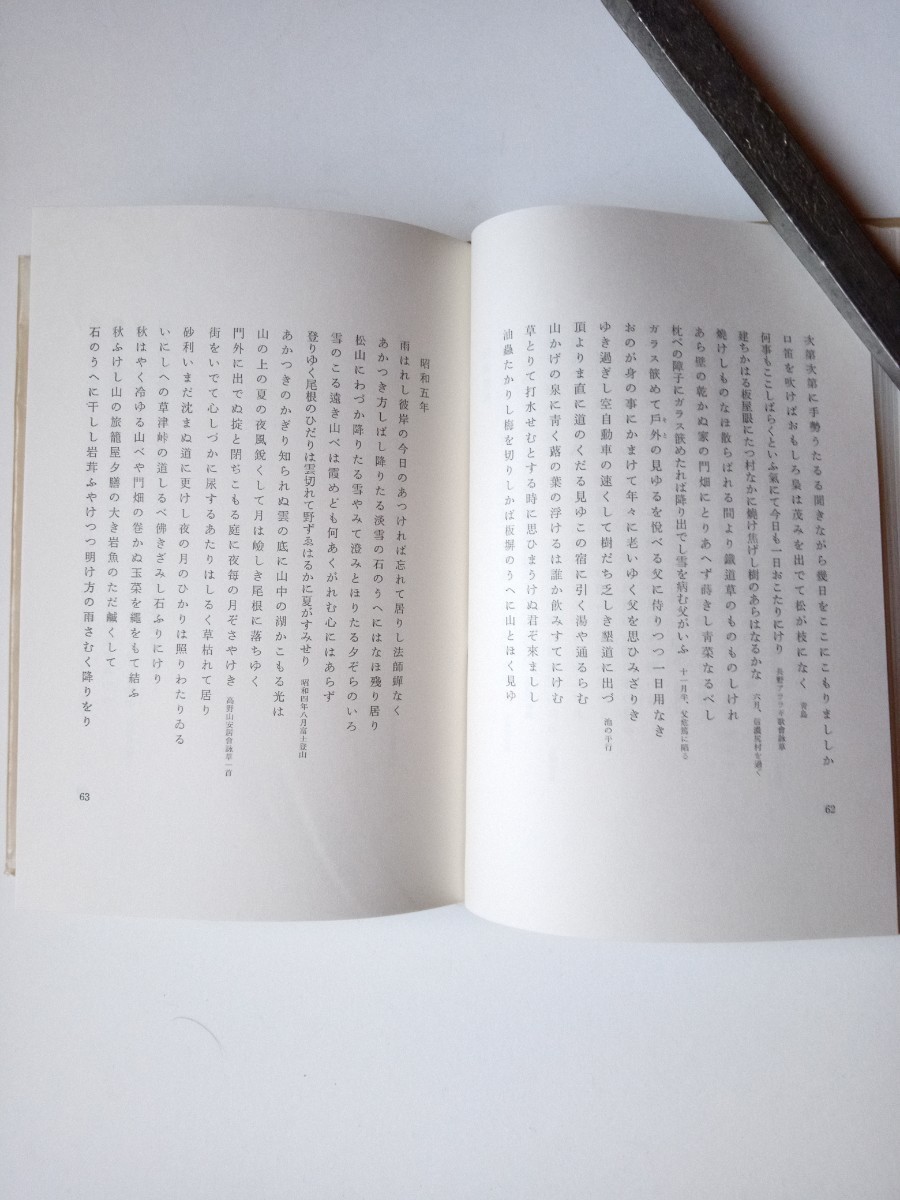 次第次第に手勢うたるる聞きながら幾日をここにこもりましし か
口笛を吹けばおもしろ梟は茂みを出でて松が枝になく 青島
何事もここしばらくといふ氣にて今日も一日おこたりにけり 長野アララギ歌會詠草
建ちかはる板屋眼にたつ村なかに燒け焦げし樹のあらはなるかな 六月、信濃尻村を過ぐ
燒けしものなほ散らばれる間より鐵道草のものものしけれ
あら壁の乾かぬ家の門畑にとりあへず蒔きし青菜なるべし
枕べの障子にガラス嵌めたれば降り出でし雪を病む父がいふ 十一月半、父危篤に陷る
ガラス嵌めて戶外の見ゆるを悅べる父に侍りつつ一日用なき
おのが身の事にかまけて年々に老いゆく父を思ひみざりき
ゆき過ぎし空自動車の速くして樹だち乏しき墾道に出づ 池の平行
頂よりま直に道のくだる見ゆこの宿に引く湯や通るらむ
山かげの泉に靑く蕗の葉の浮けるは誰か飮みすてにけむ
草とりて打水せむとする時に思ひまうけぬ君ぞ來ましし
油蟲たかりし梅を切りしかば板塀のうへに山とほく見ゆ
62
昭和五年
雨はれし彼岸の今日のあつければ忘れて居りし法師蟬なく
あかつき方しばし降りたる淡雪の石のうへにはなほ殘り居り
松山にわづか降りたる雪やみて澄みとほりたる夕ぞらのいろ
雪のこる遠き山べは霞めども何あくがれむ心にはあらず
登りゆく尾根のひだりは雲切れて野ずゑはるかに夏がすみせり 昭和四年八月富士登山
あかつきのかぎり知られぬ雲の底に山中の湖かこもる光は
山の上の夏の夜風銳くして月は嶮しき尾根に落ちゆく
門外に出でぬ掟と閉ぢこもる庭に夜每の月ぞさやけき 高野山安居會詠草一首
街をいでて心しづかに尿するあたりはしるく草枯れて居り
砂利いまだ沈まぬ道に更けし夜の月のひかりは照りわたりゐる
いにしへの草津峠の道しるべ佛きざみし石ふりにけり
秋はやく冷ゆる山べや門畑の卷かぬ玉菜を繩をもて結ふ
秋ふけし山の旅籠屋夕膳の大き岩魚のただ鹹くして
石のうへに干しし岩茸ふやけつつ明け方の雨さむく降りをり
63